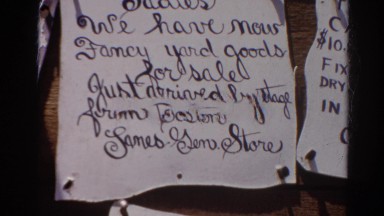 Ladies
We have now
Fancy yard goods
for sale
Just arrived by stage
from Boston
James Gen. Store
$10.
FIX
DRY
IN